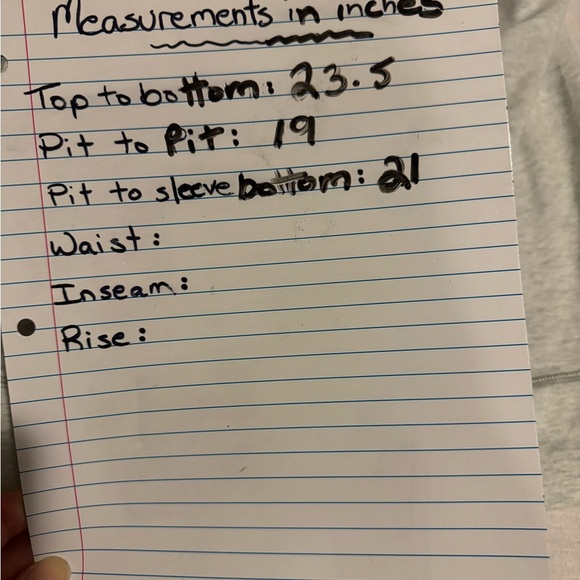 Measurements in inches
Top to bottom: 23.5
Pit to Pit: 19
Pit to sleeve bottom: 21
Waist:
Inseam:
Rise: